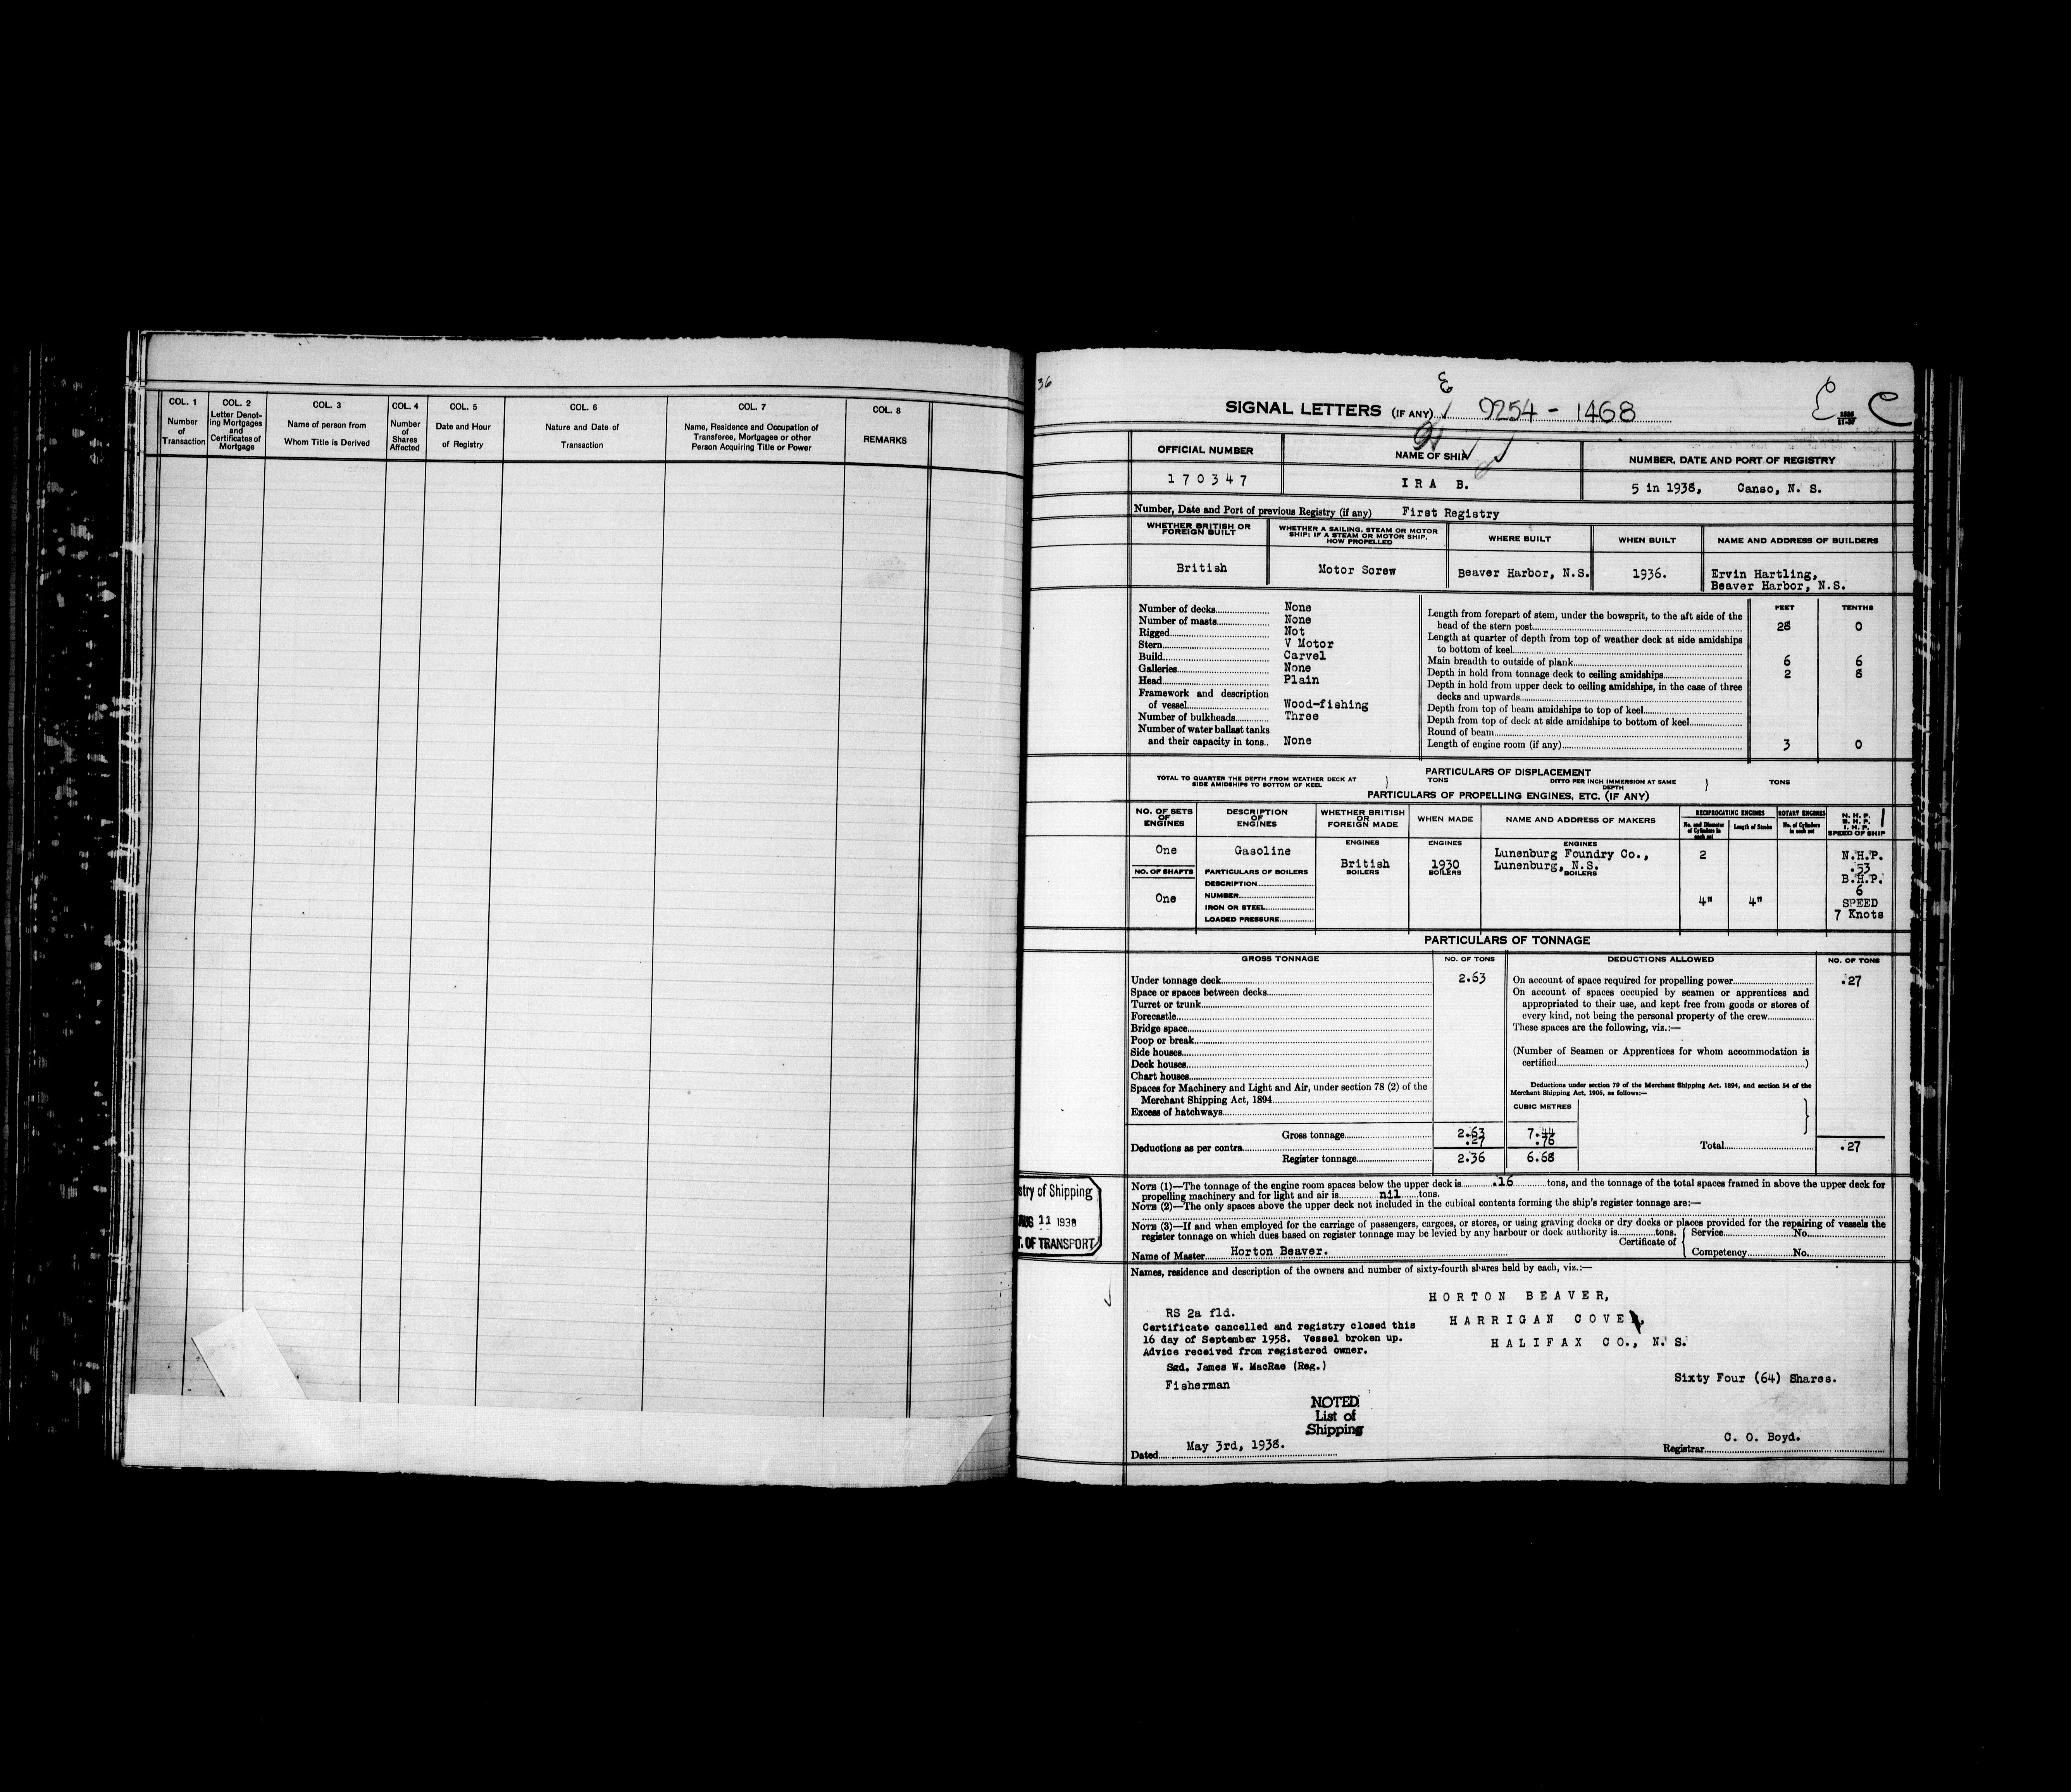 COL. 1
Number
of
Transaction
COL. 2
Letter Denot-
ing Mortgages
and
Certificates of
Mortgage
COL. 3
Name of person from
Whom Title is Derived
COL. 4
Number
of
Shares
Affected
COL. 5
Date and Hour
of Registry
COL. 6
Nature and Date of
Transaction
COL. 7
Name, Residence and Occupation of
Transferee, Mortgagee or other
Person Acquiring Title or Power
COL. 8
REMARKS
36
SIGNAL LETTERS (IF ANY) 9254 - 1468
OFFICIAL NUMBER
170347
NAME OF SHIP
IRA B.
NUMBER, DATE AND PORT OF REGISTRY
5 in 1938, Canso, N. S.
Number, Date and Port of previous Registry (if any) First Registry
WHETHER BRITISH OR
FOREIGN BUILT
British
WHETHER A SAILING, STEAM OR MOTOR
SHIP; IF A STEAM OR MOTOR SHIP,
HOW PROPELLED
Motor Screw
WHERE BUILT
Beaver Harbor, N.S.
WHEN BUILT
1936.
NAME AND ADDRESS OF BUILDERS
Ervin Hartling,
Beaver Harbor, N.S.
Number of decks None
Number of masts None
Rigged Not
Stern V Motor
Build Carvel
Galleries None
Head Plain
Framework and description
of vessel Wood-fishing
Number of bulkheads Three
Number of water ballast tanks
and their capacity in tons.. None
FEET TENTHS
Length from forepart of stem, under the bowsprit, to the aft side of the
head of the stern post 28 0
Length at quarter of depth from top of weather deck at side amidships
to bottom of keel
Main breadth to outside of plank 6 6
Depth in hold from tonnage deck to ceiling amidships 2 8
Depth in hold from upper deck to ceiling amidships, in the case of three
decks and upwards
Depth from top of beam amidships to top of keel
Depth from top of deck at side amidships to bottom of keel
Round of beam
Length of engine room (if any) 3 0
PARTICULARS OF DISPLACEMENT
TOTAL TO QUARTER THE DEPTH FROM WEATHER DECK AT
SIDE AMIDSHIPS TO BOTTOM OF KEEL } TONS
DITTO PER INCH IMMERSION AT SAME
DEPTH } TONS
PARTICULARS OF PROPELLING ENGINES, ETC. (IF ANY)
NO. OF SETS
OF
ENGINES
One
NO. OF SHAFTS
One
DESCRIPTION
OF
ENGINES
Gasoline
PARTICULARS OF BOILERS
DESCRIPTION
NUMBER
IRON OR STEEL
LOADED PRESSURE
WHETHER BRITISH
OR
FOREIGN MADE
ENGINES
British
BOILERS
WHEN MADE
ENGINES
1930
BOILERS
NAME AND ADDRESS OF MAKERS
ENGINES
Lunenburg Foundry Co.,
Lunenburg, N.S.
BOILERS
RECIPROCATING ENGINES
No. and Diameter
of Cylinders in
each set
2
4"
Length of Stroke
4"
ROTARY ENGINES
No. of Cylinders
in each set
N. H. P.
B. H. P.
I. H. P.
SPEED OF SHIP
N.H.P.
.53
B.H.P.
6
SPEED
7 Knots
PARTICULARS OF TONNAGE
GROSS TONNAGE NO. OF TONS
Under tonnage deck 2.63
Space or spaces between decks
Turret or trunk
Forecastle
Bridge space
Poop or break
Side houses
Deck houses
Chart houses
Spaces for Machinery and Light and Air, under section 78 (2) of the
Merchant Shipping Act, 1894
Excess of hatchways
Gross tonnage 2.63 7.44
Deductions as per contra .27 .76
Register tonnage 2.36 6.68
DEDUCTIONS ALLOWED NO. OF TONS
On account of space required for propelling power .27
On account of spaces occupied by seamen or apprentices and
appropriated to their use, and kept free from goods or stores of
every kind, not being the personal property of the crew
These spaces are the following, viz.:—
(Number of Seamen or Apprentices for whom accommodation is
certified )
Deductions under section 79 of the Merchant Shipping Act, 1894, and section 54 of the
Merchant Shipping Act, 1906, as follows:—
CUBIC METRES
Total .27
NOTE (1)—The tonnage of the engine room spaces below the upper deck is .16 tons, and the tonnage of the total spaces framed in above the upper deck for
propelling machinery and for light and air is nil tons.
NOTE (2)—The only spaces above the upper deck not included in the cubical contents forming the ship's register tonnage are:—
NOTE (3)—If and when employed for the carriage of passengers, cargoes, or stores, or using graving docks or dry docks or places provided for the repairing of vessels the
register tonnage on which dues based on register tonnage may be levied by any harbour or dock authority is tons.
Name of Master Horton Beaver.
Certificate of { Service No.
Competency No.
stry of Shipping
AUG 11 1938
T. OF TRANSPORT
Names, residence and description of the owners and number of sixty-fourth shares held by each, viz.:—
HORTON BEAVER,
HARRIGAN COVE,
HALIFAX CO., N.S.
RS 2a fld.
Certificate cancelled and registry closed this
16 day of September 1958. Vessel broken up.
Advice received from registered owner.
Sgd. James W. MacRae (Reg.)
Fisherman
Sixty Four (64) Shares.
NOTED
List of
Shipping
Dated May 3rd, 1938.
C. O. Boyd.
Registrar